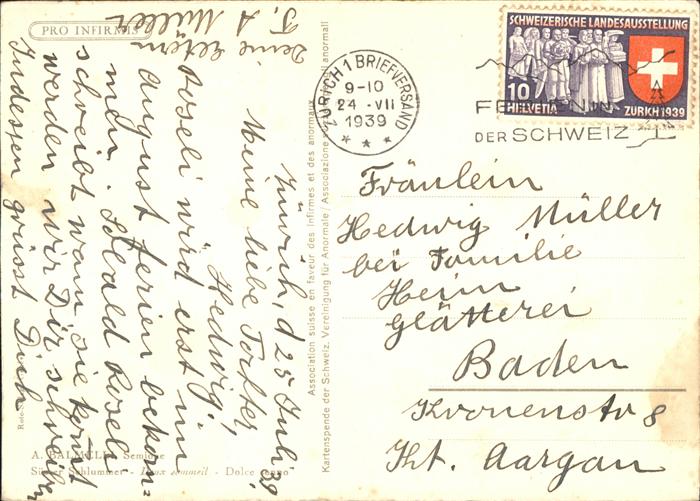 PRO INFIRMIS
Zürich, d 25 Juli 39
Meine liebe Tochter,
Hedwig!
Roseli wird erst im
August ferien bekom=
men. Sobald Roseli
schreibt wann sie komt
werden wir Dir schreiben
Indessen grüsst Dich
Deine Eltern
F. A Müller
A. BALMELLI, Semione
Süsser Schlummer - Doux sommeil - Dolce sonno
Association suisse en faveur des infirmes et des anormaux
Kartenspende der Schweiz. Vereinigung für Anormale / Associazione
ZÜRICH 1 BRIEFVERSAND
9-10
24.VII
1939
SCHWEIZERISCHE LANDESAUSSTELLUNG
10
HELVETIA
ZÜRICH 1939
FERIEN IN
DER SCHWEIZ
Fräulein
Hedwig Müller
bei Familie
Heim
Glätterei
Baden
Kronenstr 8
Kt. Aargau